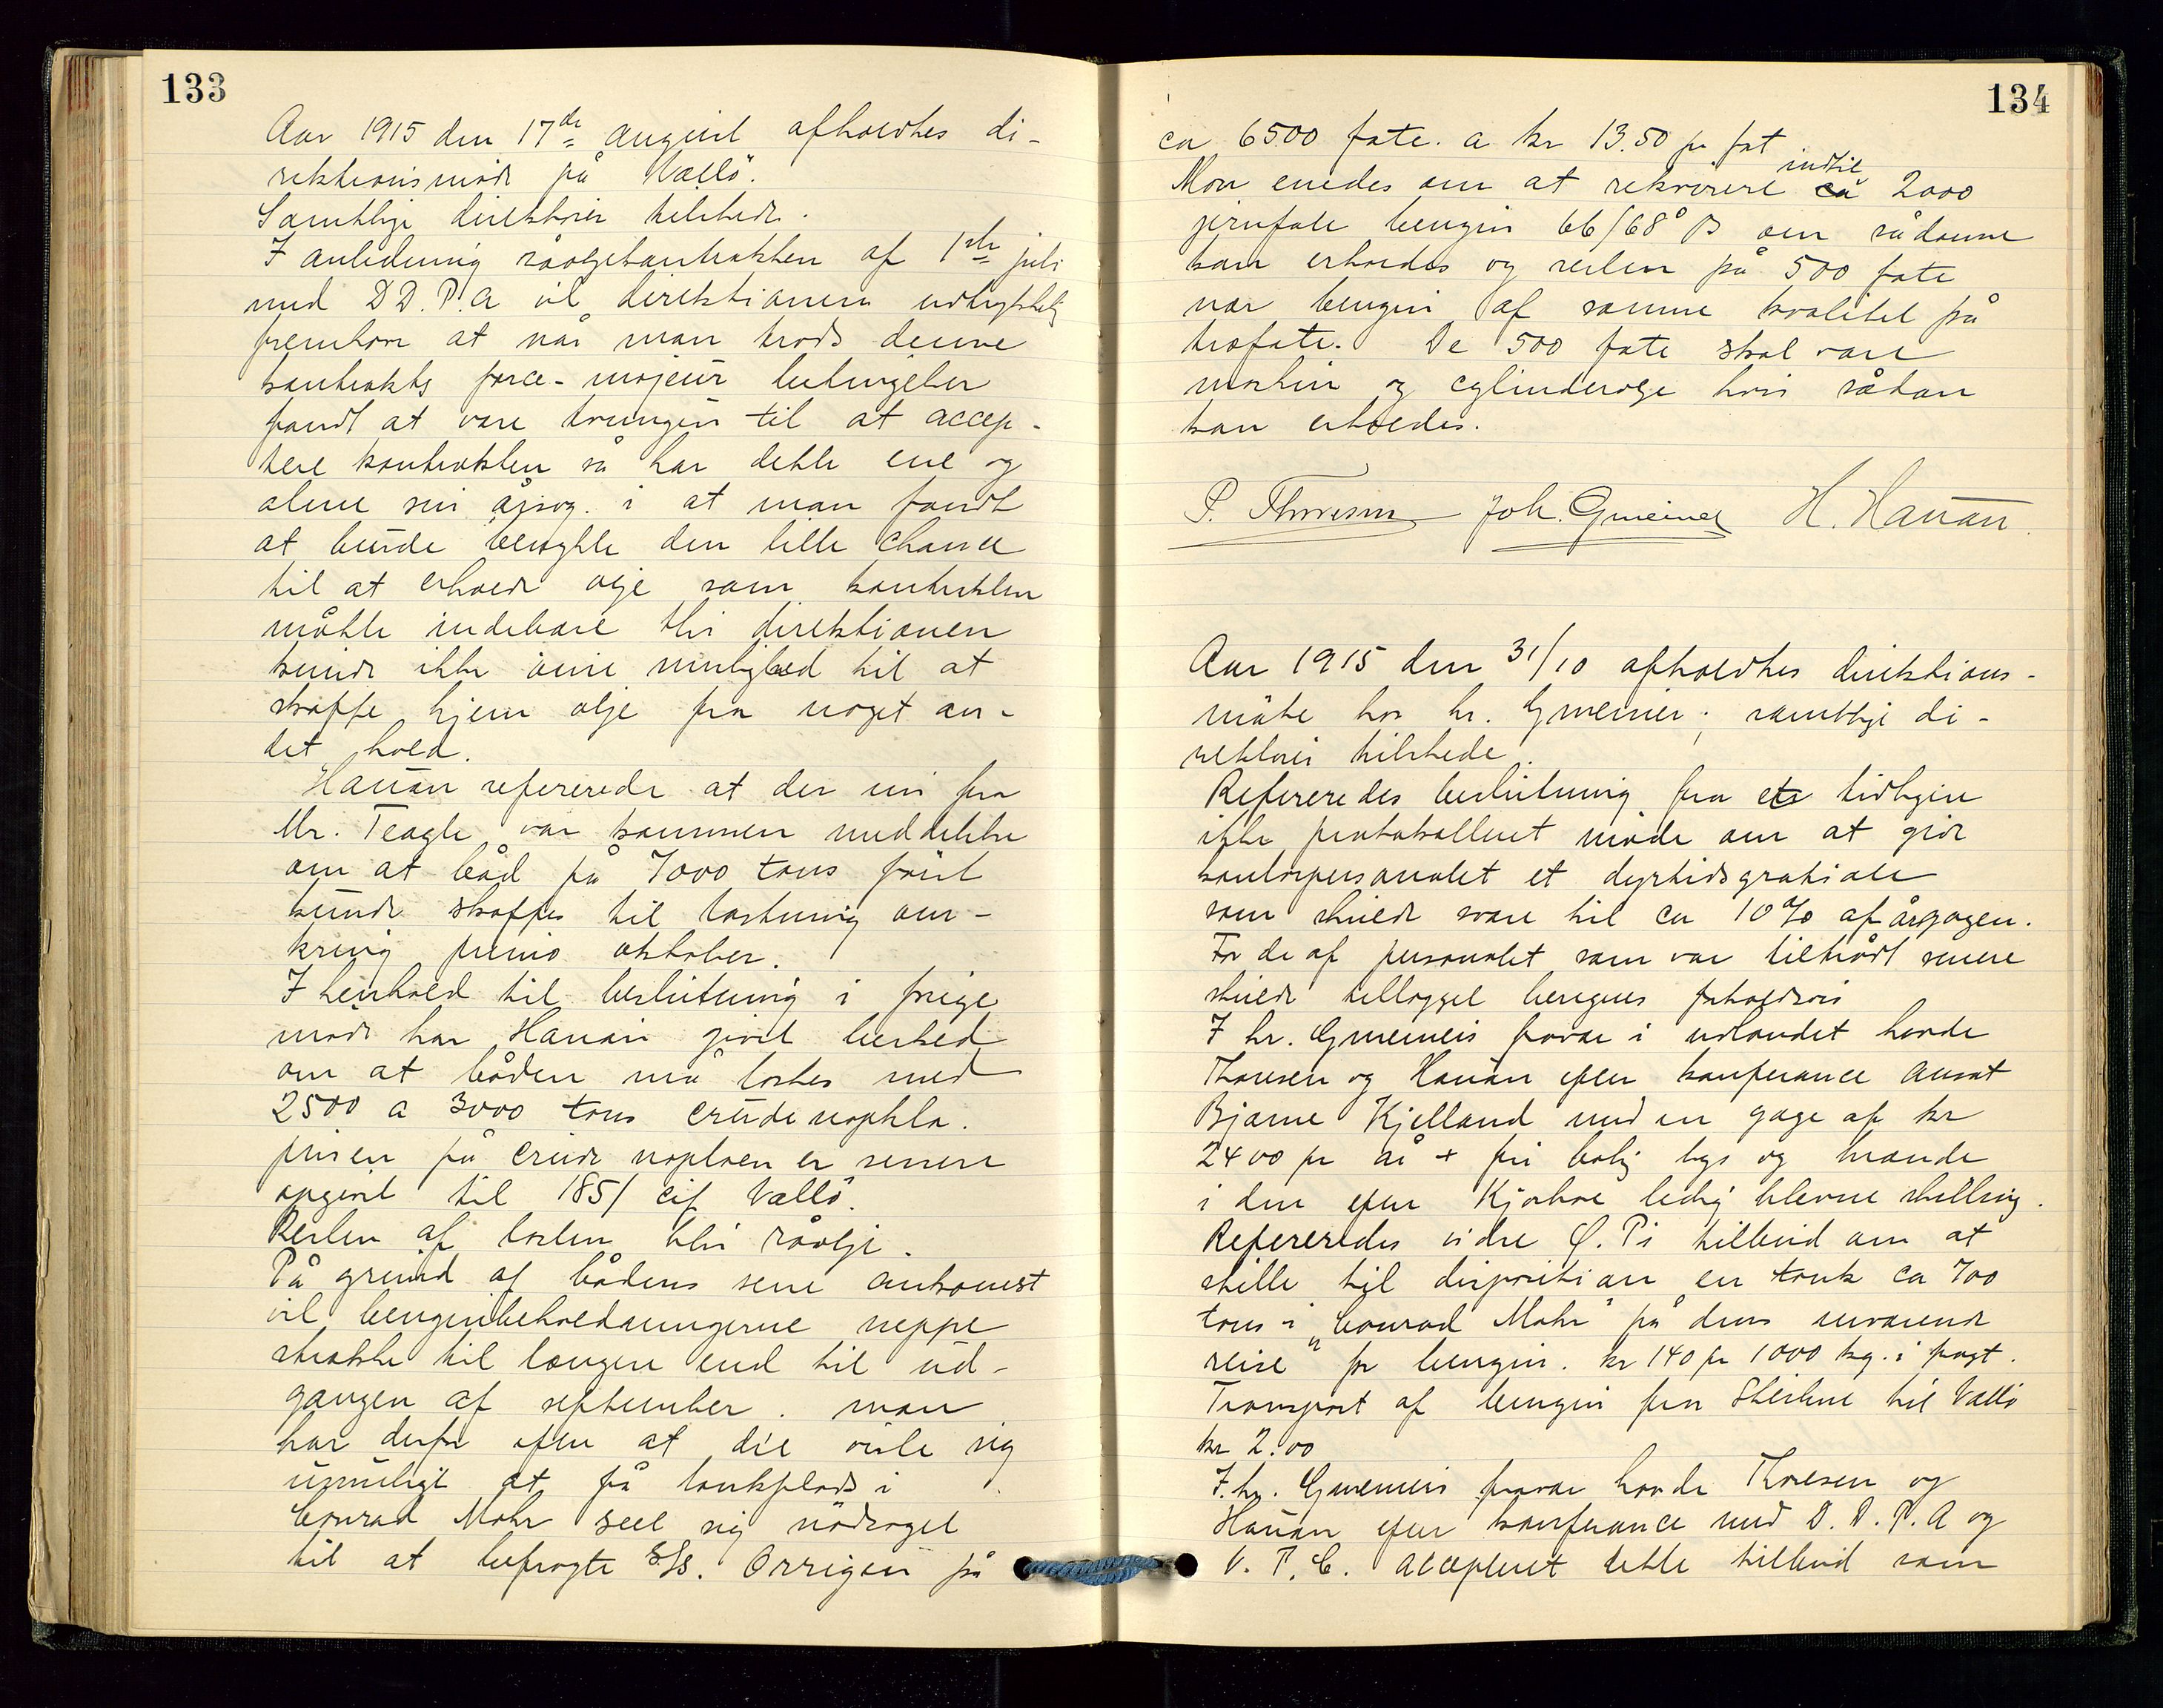 133
Aar 1915 den 17de august afholdtes di-
rektionsmöde på Vallö.
Samtlige direktörer tilstede.
I anledning råoljekontrakten af 1ste juli
med D D. P. A vil direktionen udtrykkelig
fremhæve at når man trods denne
kontrakts force-majeur betingelser
fandt at være tvungen til at accep-
tere kontrakten så har dette ene og
alene sin årsag i at man fandt
at burde benytte den lille chance
til at erholde olje som kontrakten
måtte indebære thi direktionen
kunde ikke öine mulighed til at
skaffe hjem olje fra noget an-
det hold.
Hauan refererede at der nu fra
Mr. Teagle var kommen meddelelse
om at båd på 7000 tons först
kunde skaffes til lastning om-
kring primo oktober.
I henhold til beslutning i forrige
möde har Hauan givet besked
om at båden må lastes med
2500 a 3000 tons crude naphta.
prisen på crude naphtaen er senere
opgivet til 185/ cif Vallö.
Resten af lasten blir råolje.
På grund af bådens sene ankomst
vil benzinbeholdningerne neppe
strække til længere end til ud-
gangen af september. man
har derfor efter at det viste sig
umuligt at få tankplads i
Conrad Mohr seet sig nödsaget
til at befragte S/S. Orrigen på
134
ca 6500 fate. a kr 13.50 pr fat
Man enedes om at rekvirere ca indtil 2000
jernfate benzin 66/68° B om sådanne
kan erholdes og resten på 500 fate
var benzin af samme kvalitet på
træfate. De 500 fate skal være
maskin og cylinderolje hvis sådan
kan erholdes.
P. Thoresen Joh. Gmeiner H. Hauan
Aar 1915 den 31/10 afholdtes direktions-
möte hos hr. Gmeiner; samtlige di-
rektörer tilstede.
Refereredes beslutning fra et tidligere
ikke protokolleret möde om at give
kontorpersonalet et dyrtidsgratiale
som skulde svare til ca 10% af årsgagen.
For de af personalet som var tiltrådt senere
skulde tillægget beregnes forholdsvis
I hr. Gmeiners fravær i udlandet havde
Thoresen og Hauan efter konferance ansat
Bjarne Kjelland med en gage af kr
2400 pr år + fri bolig lys og brænde
i den efter Kjorboe ledig blevne stilling.
Refereredes videre Ö. P's tilbud om at
stille til disposition en tank ca 700
tons i "Conrad Mohr" på dens nuværende
reise for benzin. kr 140 pr 1000 kg. i fragt.
Transport af benzin fra Steilene til Vallö
kr 2.00
I hr. Gmeiners fravær havde Thoresen og
Hauan efter konferance med D. D. P. A og
V. P. C. accepteret dette tilbud som